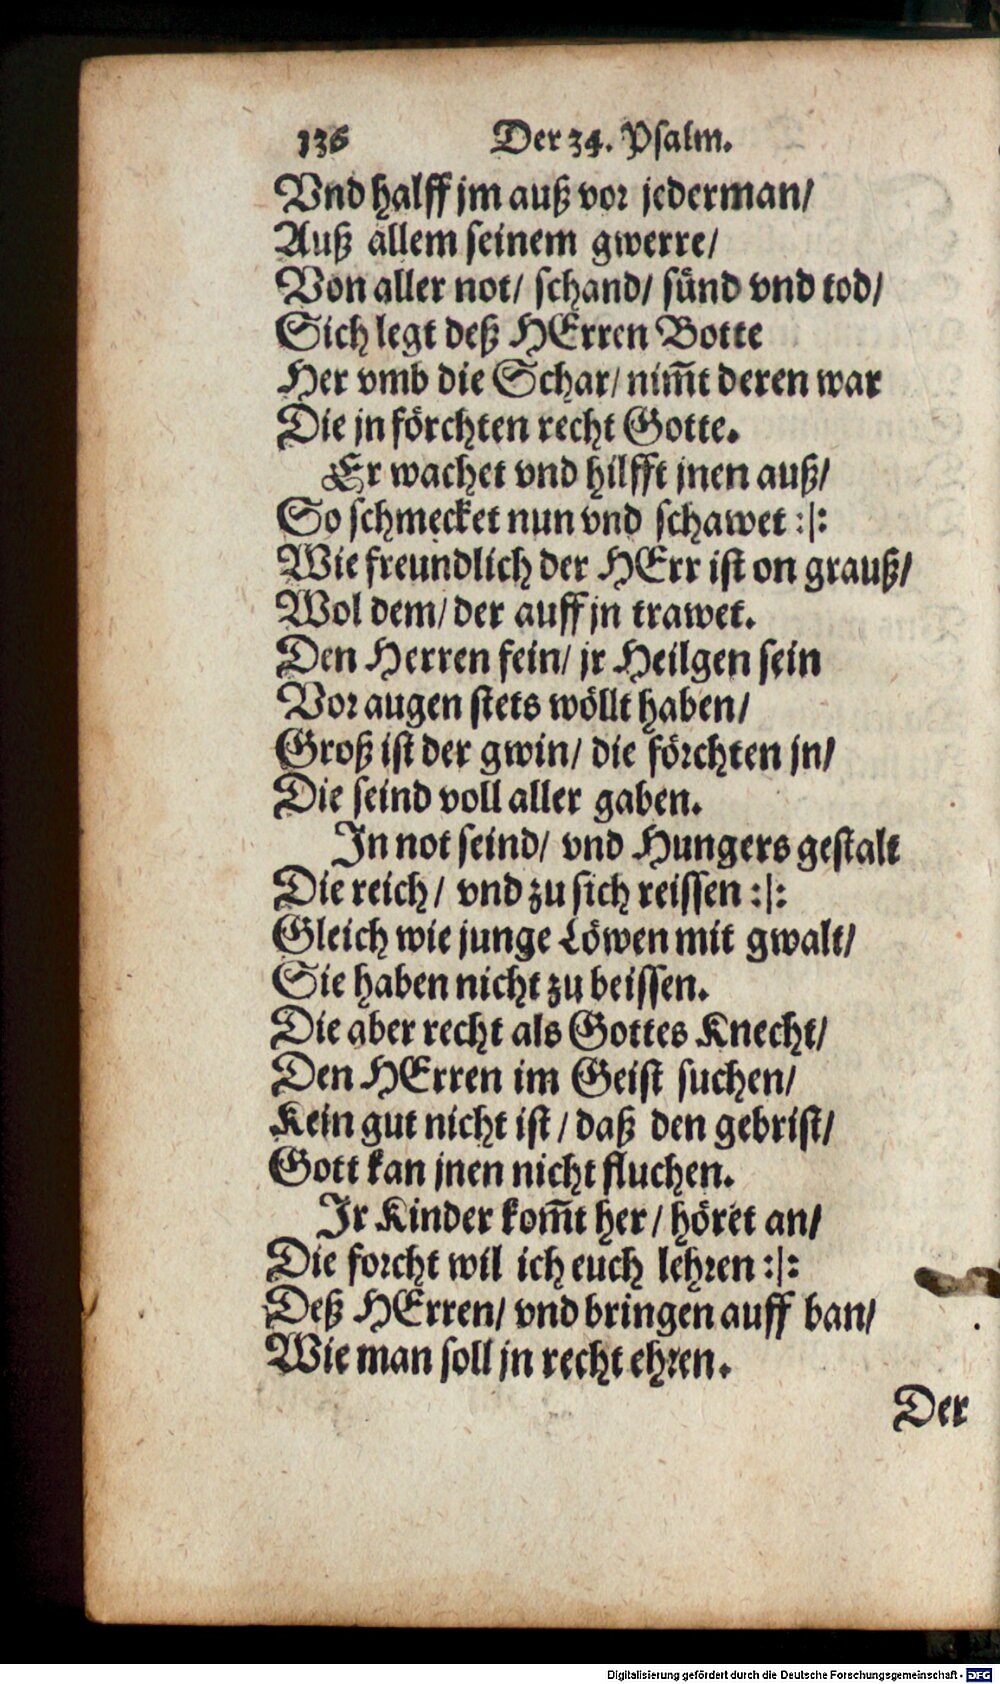 136 Der 34. Psalm.
Vnd halff jm auß vor jederman/
Auß allem seinem gwerre/
Von aller not/ schand/ sünd vnd tod/
Sich legt deß HErren Botte
Her vmb die Schar/ nim̃t deren war
Die jn förchten recht Gotte.
Er wachet vnd hilfft jnen auß/
So schmecket nun vnd schawet :|:
Wie freundlich der HErr ist on grauß/
Wol dem/ der auff jn trawet.
Den Herren fein/ jr Heilgen sein
Vor augen stets wöllt haben/
Groß ist der gwin/ die förchten jn/
Die seind voll aller gaben.
In not seind/ vnd Hungers gestalt
Die reich/ vnd zu sich reissen :|:
Gleich wie junge Löwen mit gwalt/
Sie haben nicht zu beissen.
Die aber recht als Gottes Knecht/
Den HErren im Geist suchen/
Kein gut nicht ist/ daß den gebrist/
Gott kan jnen nicht fluchen.
Ir Kinder kom̃t her/ höret an/
Die forcht wil ich euch lehren :|:
Deß HErren/ vnd bringen auff ban/
Wie man soll jn recht ehren.
Der
Digitalisierung gefördert durch die Deutsche Forschungsgemeinschaft - DFG